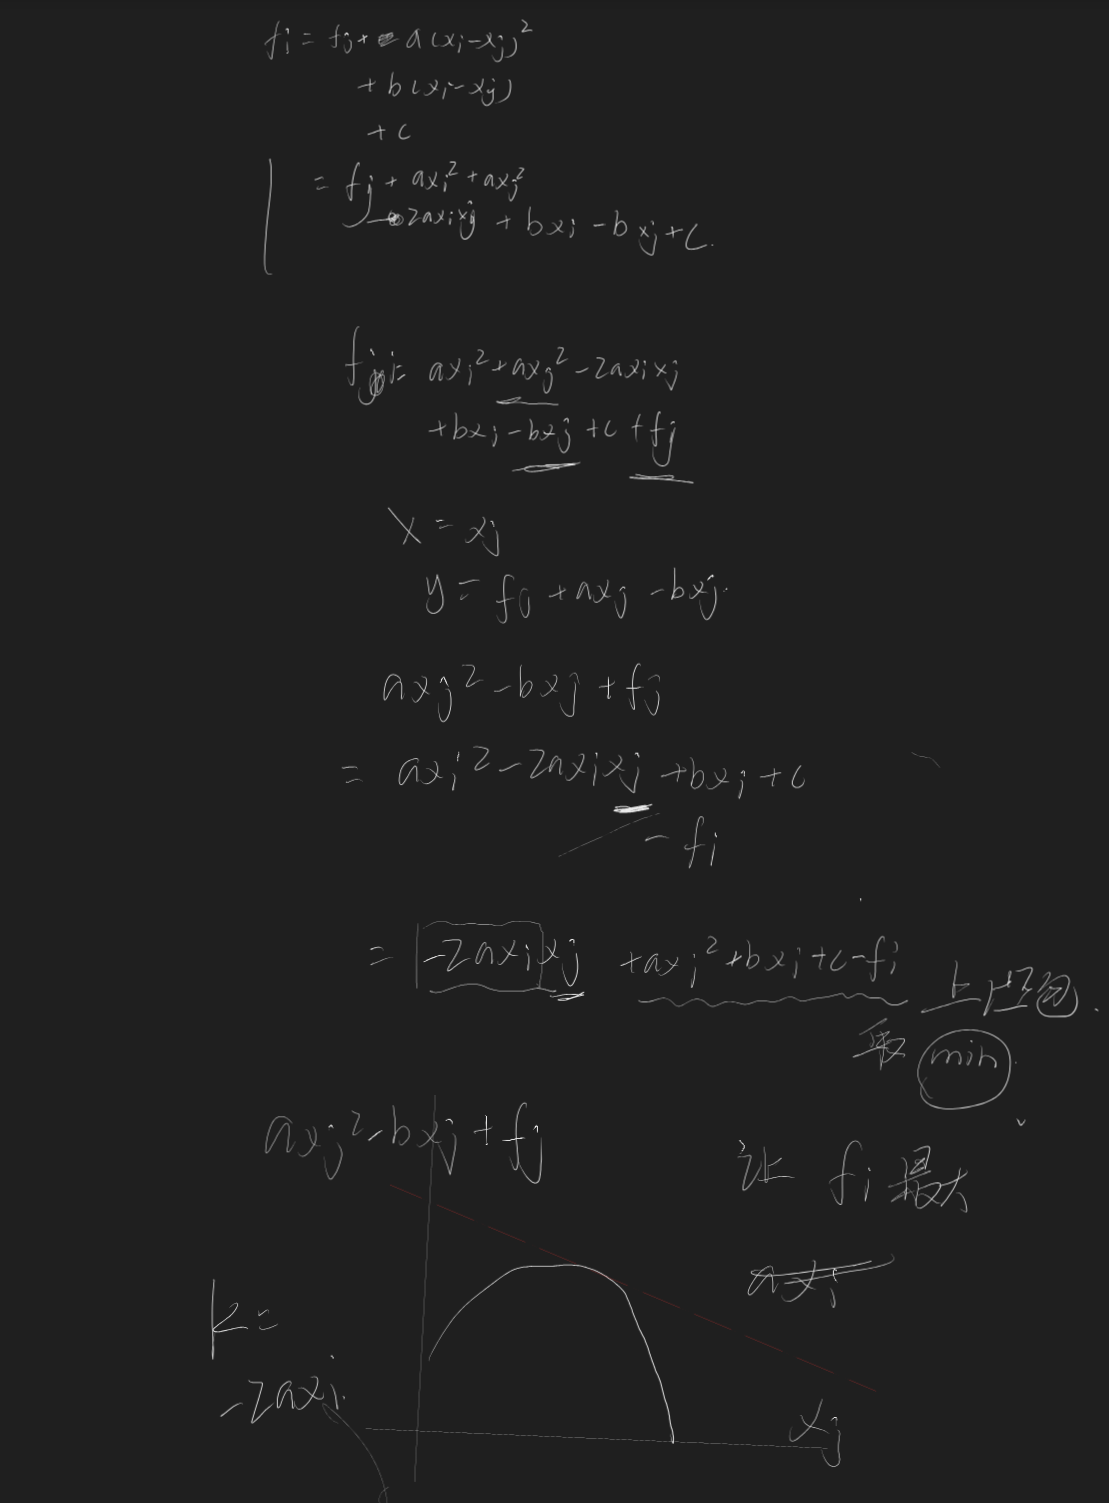 fi = fj + a(xi-xj)²
+ b(xi-xj)
+ c
= fj + axi² + axj²
-2axixj + bxi - bxj + c.
fi = axi² + axj² - 2axixj
+bxi - bxj + c + fj
x = xj
y = fj + axj - bxj.
axj² - bxj + fj
= axi² - 2axixj + bxi + c
- fi
= -2axi xj + axi² + bxi + c - fi
上凸包.
取 min
axj² - bxj + fj
让 fi 最大
axi
k =
-2axi.
xj